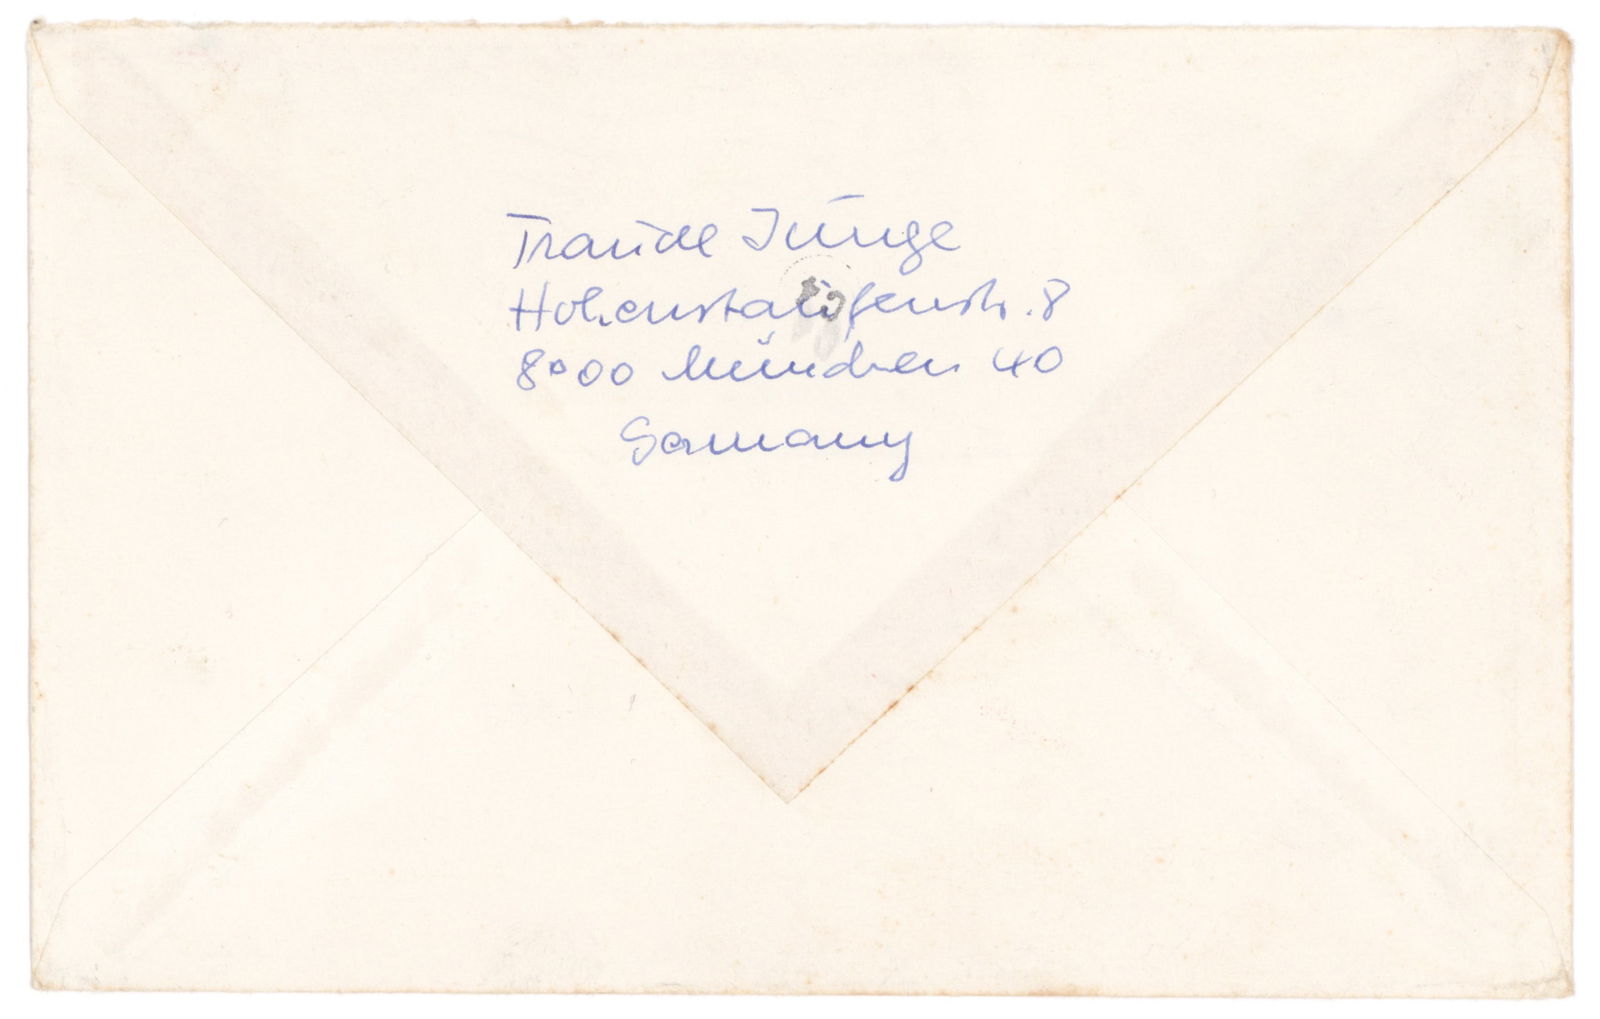 Traudl Junge
Hohenstaufenstr. 8
8000 München 40
Germany